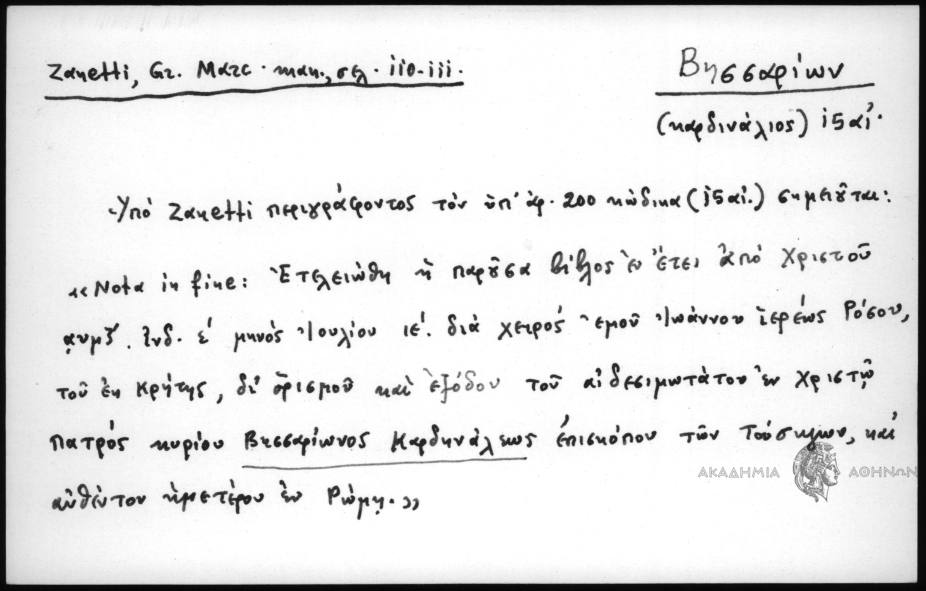 Zanetti, Gr. Marc. man., σελ. 110-111.
Βησσαρίων
(καρδινάλιος) 15 αἰ.
Ὑπό Zanetti περιγράφοντος τόν ὑπ' ἀρ. 200 κώδικα (15 αἰ.) σημειοῦται:
«Nota in fine: Ἐτελειώθη ἡ παροῦσα βίβλος ἐν ἔτει ἀπό Χριστοῦ
Ἰνδ. ε΄ μηνός Ἰουλίου ιε΄. διά χειρός ἐμοῦ Ἰωάννου ἱερέως Ρόσου,
τοῦ ἐκ Κρήτης, δι' ὁρισμοῦ καί ἐξόδου τοῦ αἰδεσιμωτάτου ἐν Χριστῷ
πατρός κυρίου Βησσαρίωνος Καρδηνάλεως ἐπισκόπου τῶν Τούσκλων, καί
αὐθέντου ἡμετέρου ἐν Ρώμῃ.»
ΑΚΑΔΗΜΙΑ ΑΘΗΝΩΝ